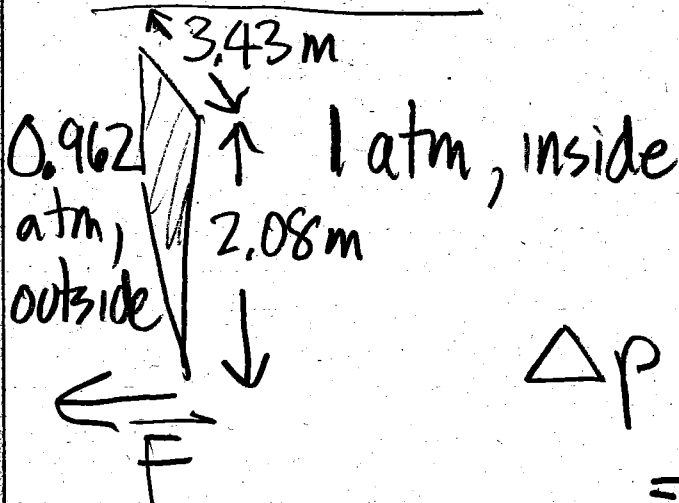 3.43 m
0.962 atm, outside
1 atm, inside
2.08 m
Δp
=
F